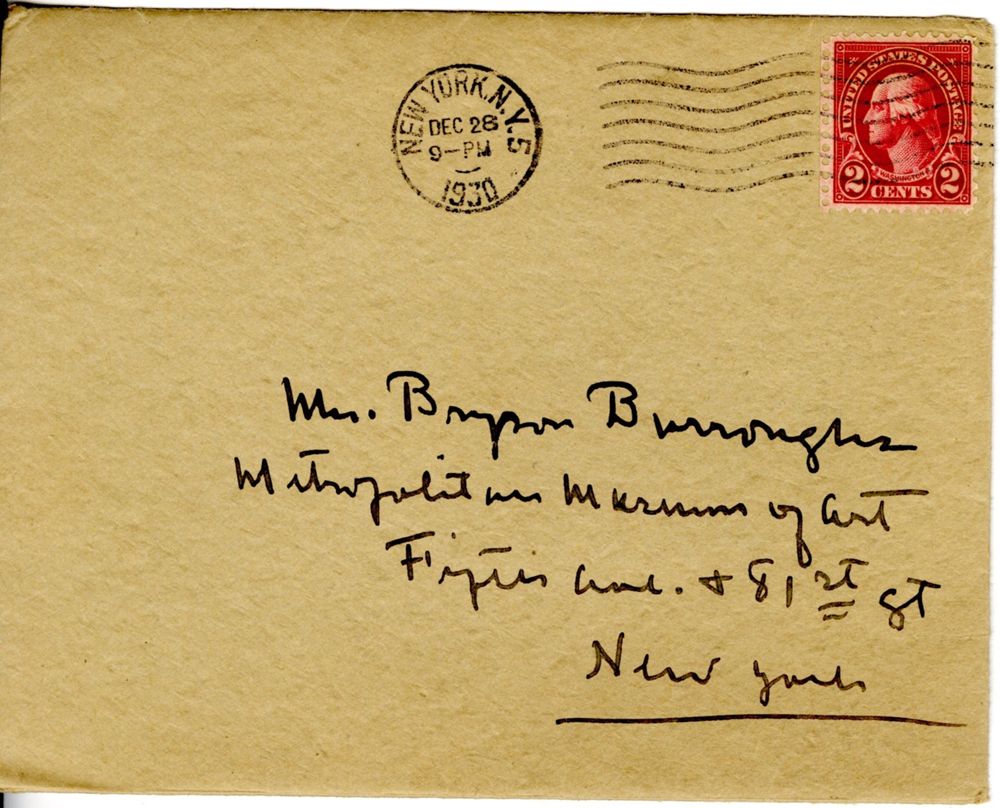 NEW YORK, N.Y. 5
DEC 28
9-PM
1930
UNITED STATES POSTAGE
WASHINGTON
2 CENTS 2
Mr. Bryson Burroughs
Metropolitan Museum of Art
Fifth Ave. & 81st St
New York